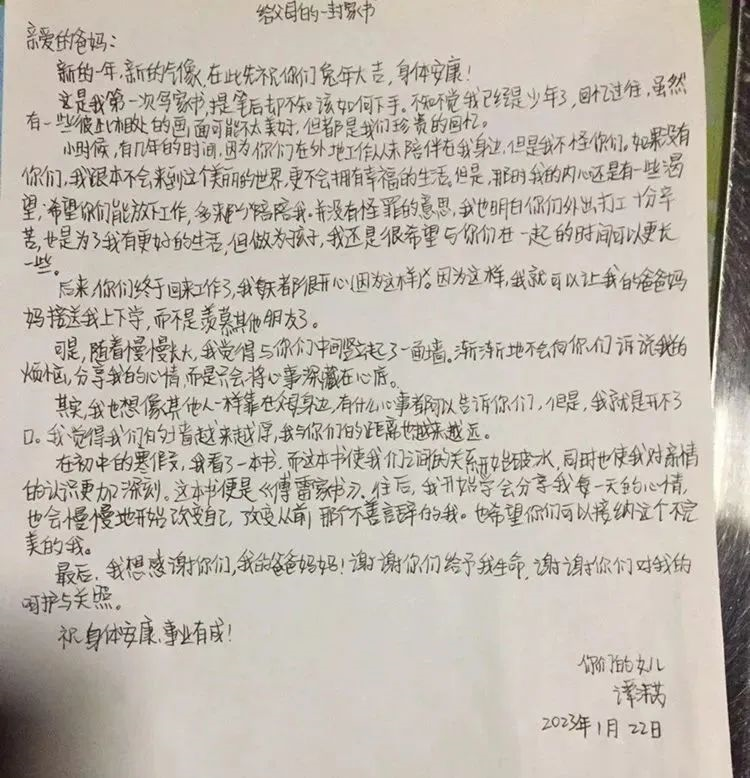 给父母的一封家书
亲爱的爸妈：
新的一年，新的气像，在此先祝你们兔年大吉，身体安康！
这是我第一次写家书，提笔后却不知该如何下手。不知不觉我已经是少年了，回忆过往，虽然
有一些彼此相处的画面可能不太美好，但都是我们珍贵的回忆。
小时候，有几年的时间，因为你们在外地工作从未陪伴在我身边，但是我不怪你们。如果没有
你们，我跟本不会来到这个美丽的世界，更不会拥有幸福的生活。但是，那时我的内心还是有一些渴
望；希望你们能放下工作，多来陪陪我，并没有怪罪的意思，我也明白你们外出打工十分辛
苦，也是为了我有更好的生活，但做为孩子，我还是很希望与你们在一起的时间可以更长
一些。
后来，你们终于回来工作了，我每天都很开心（因为这样）。因为这样，我就可以让我的爸爸妈
妈接送我上下学，而不是羡慕其他朋友了。
可是，随着慢慢长大，我觉得与你们中间竖起了一面墙。渐渐地不会向你们诉说我的
烦恼，分享我的心情，而是只会将心事深藏在心底。
其实，我也想像其他人一样靠在父母身边，有什么心事都可以告诉你们，但是，我就是开不了
口。我觉得我们的墙越来越厚，我与你们的距离也越来越远。
在初中的寒假，我看了一本书，而这本书使我们之间的关系开始破冰，同时也使我对亲情
的认识更加深刻。这本书便是《傅雷家书》。往后，我开始学会分享我每一天的心情，
也会慢慢地开始改变自己，改变从前那个不善言辞的我。也希望你们可以接纳这个不完
美的我。
最后，我想感谢你们，我的爸爸妈妈！谢谢你们给予我生命，谢谢你们对我的
呵护与关照。
祝身体安康，事业有成！
你们的女儿
谭
2023年1月22日